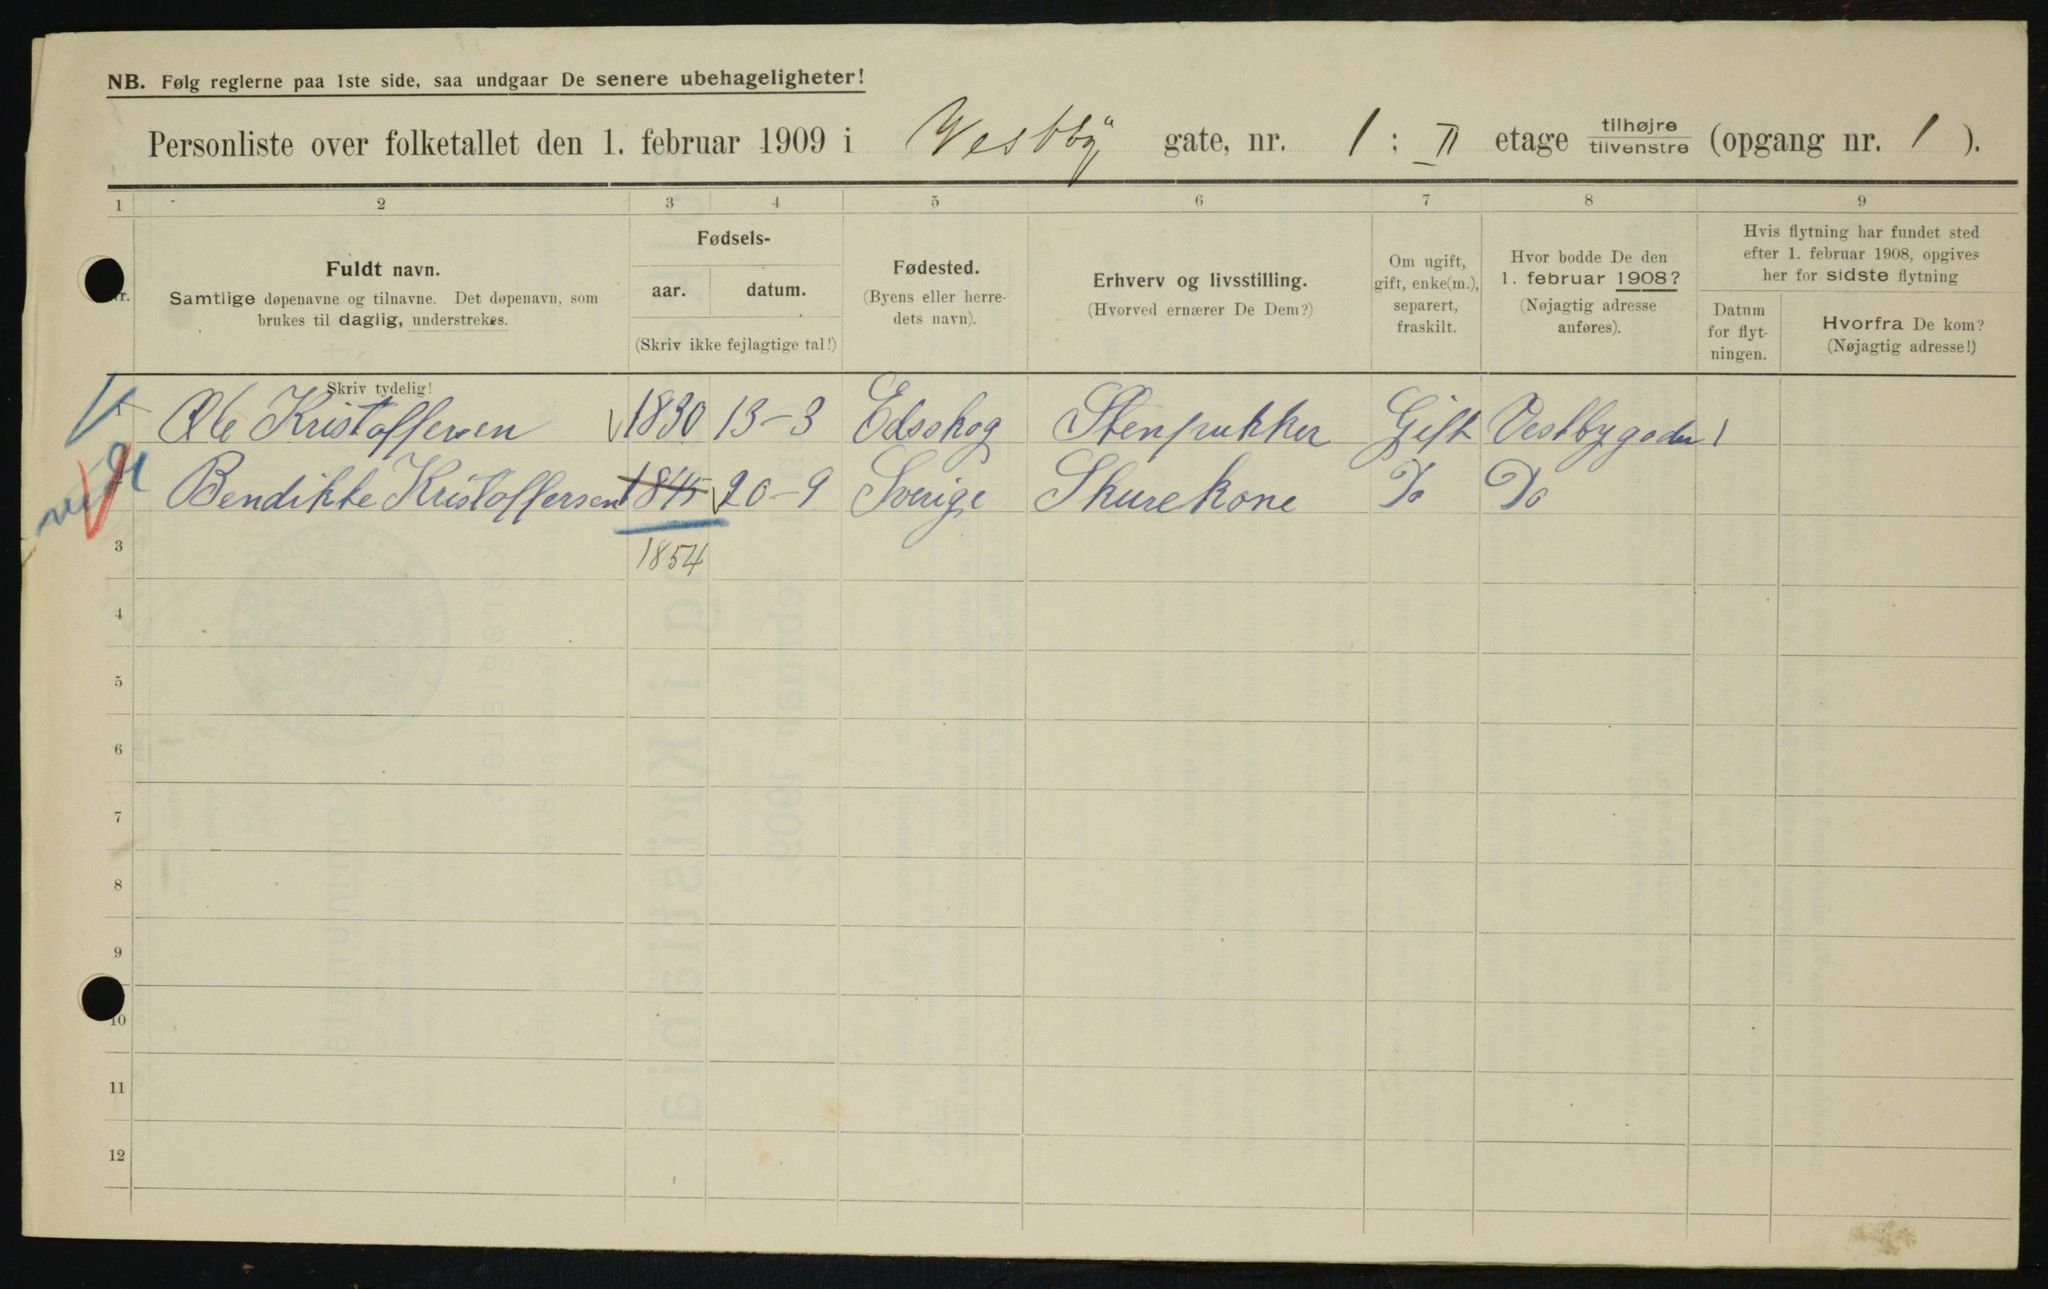 NB. Følg reglerne paa 1ste side, saa undgaar De senere ubehageligheter!
Personliste over folketallet den 1. februar 1909 i Vestby gate, nr. 1 : II etage tilhøjre/tilvenstre (opgang nr. 1 ).
1 2 3 4 5 6 7 8 9
Nr.
Fuldt navn.
Samtlige døpenavne og tilnavne. Det døpenavn, som
brukes til daglig, understrekes.
Skriv tydelig!
Fødsels-
aar. datum.
(Skriv ikke fejlagtige tal!)
Fødested.
(Byens eller herre-
dets navn).
Erhverv og livsstilling.
(Hvorved ernærer De Dem?)
Om ugift,
gift, enke(m.),
separert,
fraskilt.
Hvor bodde De den
1. februar 1908?
(Nøjagtig adresse
anføres).
Hvis flytning har fundet sted
efter 1. februar 1908, opgives
her for sidste flytning
Datum
for flyt-
ningen.
Hvorfra De kom?
(Nøjagtig adresse!)
1 Ole Kristoffersen 1830 13-3 Edsskog Stenpukker Gift Vestbygaden 1
Bendikte Kristoffersen 1845 20-9 Sverige Skurekone Do Do
3 1854
4
5
6
7
8
9
10
11
12